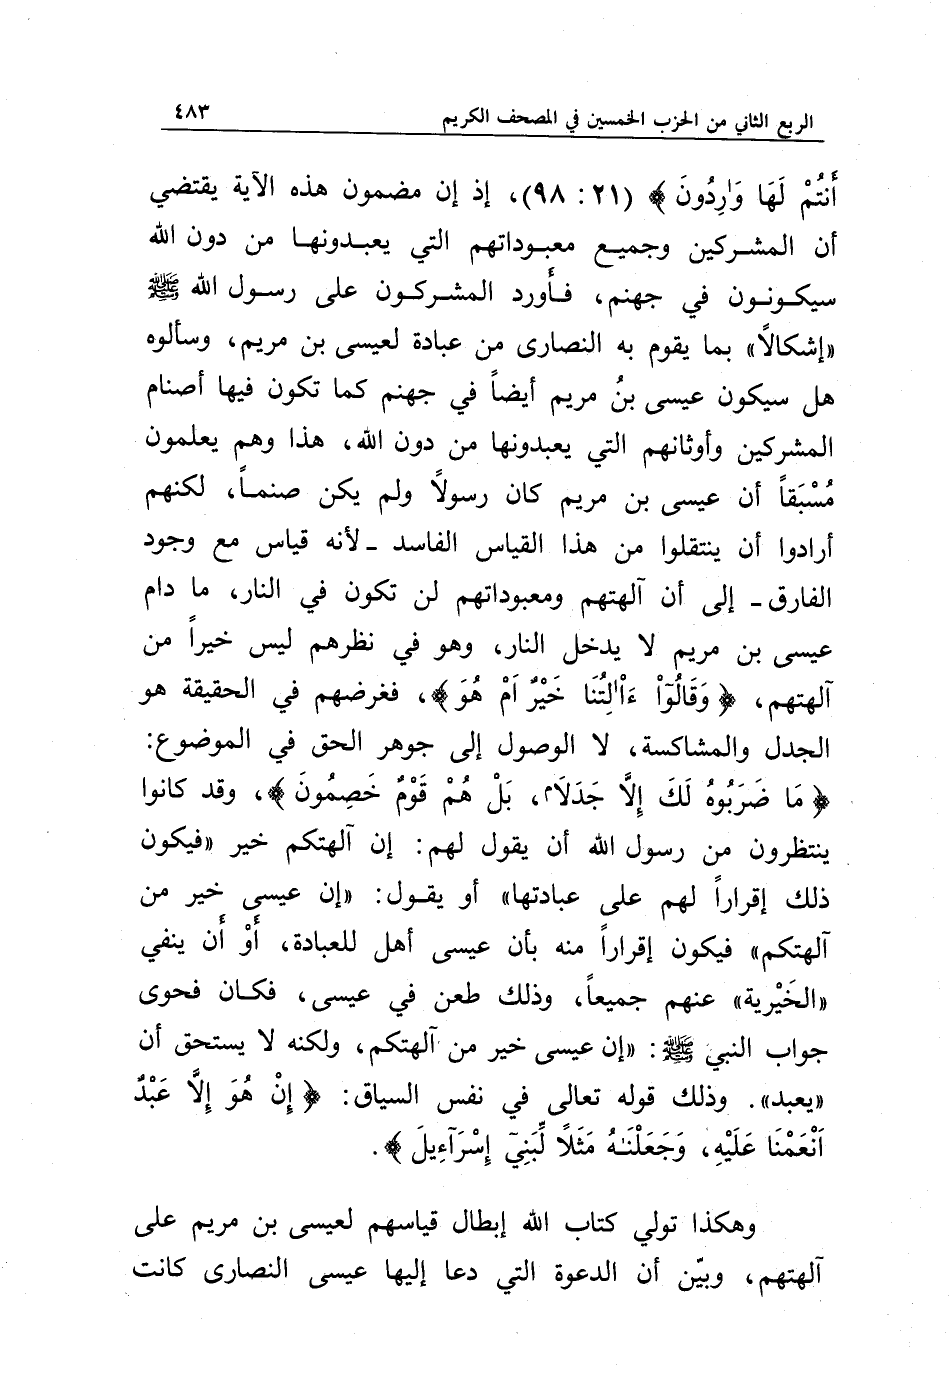 الربع الثاني من الحزب الخمسين في المصحف الكريم ٤٨٣
أَنتُمْ لَهَا وَٰرِدُونَ ﴾ (٢١ : ٩٨)، إذ إن مضمون هذه الآية يقتضي
أن المشـركين وجميـع معبـوداتهم التي يعبـدونهـا من دون الله
سيكـونـون في جهنم، فـأورد المشـركـون على رسـول الله ﷺ
«إشكالًا» بما يقوم به النصارى من عبادة لعيسى بن مريم، وسألوه
هل سيكون عيسى بنُ مريم أيضاً في جهنم كما تكون فيها أصنام
المشركين وأوثانهم التي يعبدونها من دون الله، هذا وهم يعلمون
مُسْبَقاً أن عيسى بن مريم كان رسولًا ولم يكن صنمـاً، لكنهم
أرادوا أن ينتقلوا من هذا القياس الفاسد ـ لأنه قياس مع وجود
الفارق ـ إلى أن آلهتهم ومعبوداتهم لن تكون في النار، ما دام
عيسى بن مريم لا يدخل النار، وهو في نظرهم ليس خيراً من
آلهتهم، ﴿ وَقَالُوٓاْ ءَاْٰلِهَتُنَا خَيْرٌ اَمْ هُوَ ﴾، فغرضهم في الحقيقة هو
الجدل والمشاكسة، لا الوصول إلى جوهر الحق في الموضوع:
﴿ مَا ضَرَبُوهُ لَكَ إِلَّا جَدَلَاۢ، بَلْ هُمْ قَوْمٌ خَصِمُونَ ﴾، وقد كانوا
ينتظرون من رسول الله أن يقول لهم: إن آلهتكم خير «فيكون
ذلك إقراراً لهم على عبادتها» أو يقـول: «إن عيسى خير من
آلهتكم» فيكون إقراراً منه بأن عيسى أهل للعبادة، أَوْ أَن ينفي
«الخَيْرية» عنهم جميعاً، وذلك طعن في عيسى، فكـان فحوى
جواب النبي ﷺ: «إن عيسى خير من آلهتكم، ولكنه لا يستحق أن
«يعبد». وذلك قوله تعالى في نفس السياق: ﴿ إِنْ هُوَ إِلَّا عَبْدٌ
اَنْعَمْنَا عَلَيْهِ، وَجَعَلْنَٰهُ مَثَلًا لِّبَنِيٓ إِسْرَآءِيلَ ﴾.
وهكذا تولي كتاب الله إبطال قياسهم لعيسى بن مريم على
آلهتهم، وبيّن أن الدعوة التي دعا إليها عيسى النصارى كانت